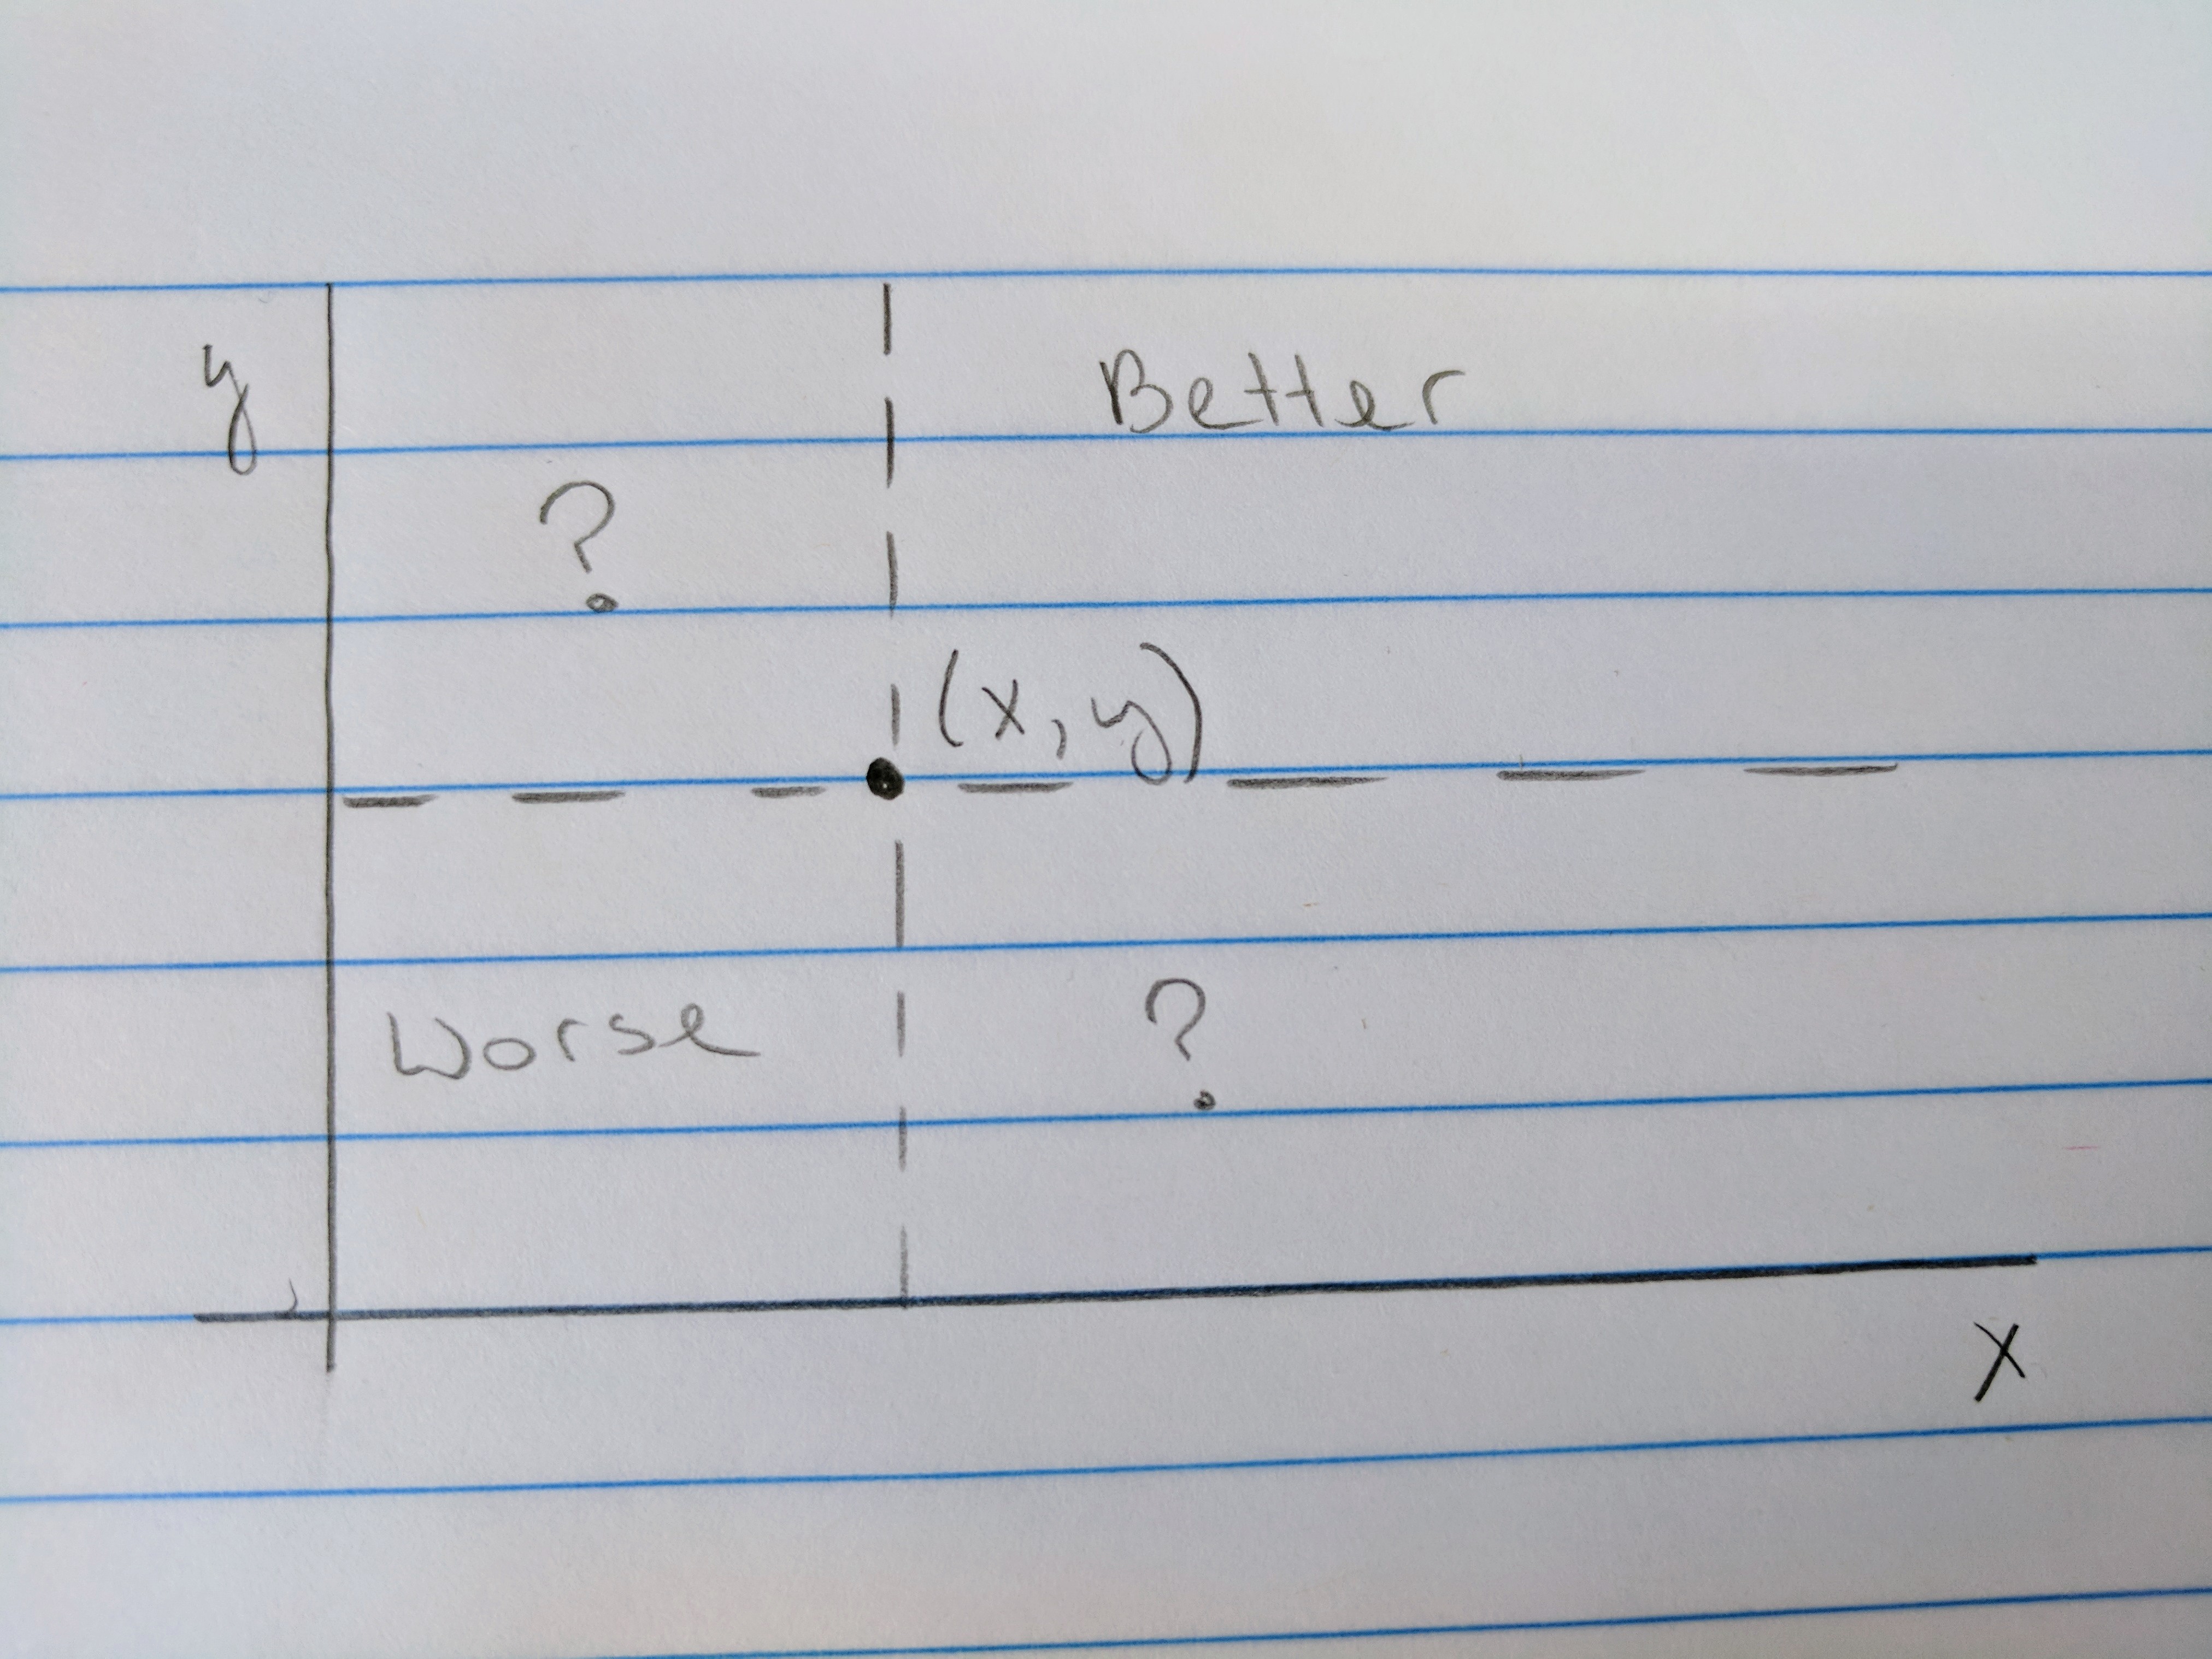 y
Better
?
(x, y)
Worse
?
x